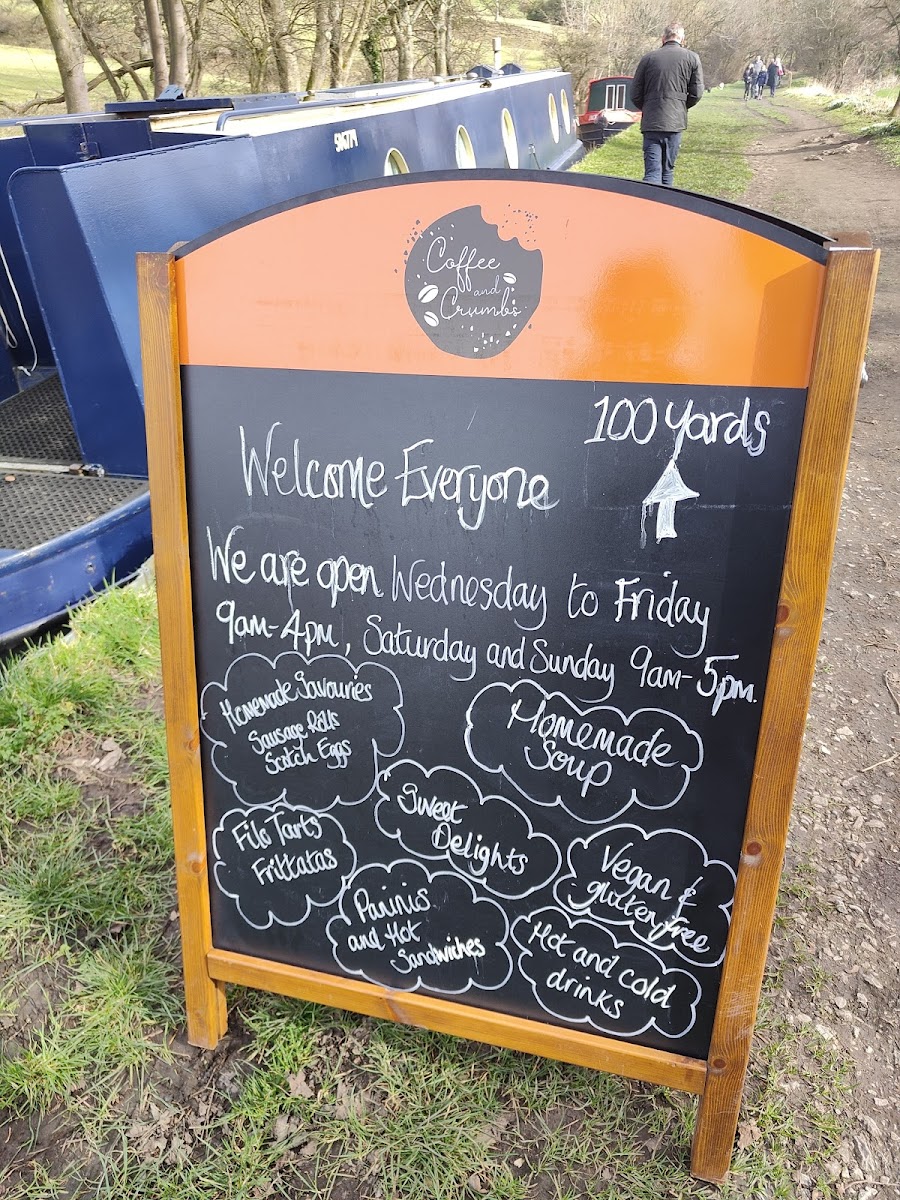 Coffee
and
Crumbs
100 yards
Welcome Everyone
We are open Wednesday to Friday
9am-4pm, Saturday and Sunday 9am-5pm.
Homemade Savouries
Sausage Rolls
Scotch Eggs
Homemade
Soup
Sweet
Delights
Filo Tarts
Frittatas
Vegan &
glutten free
Paninis
and Hot
Sandwiches
Hot and cold
drinks